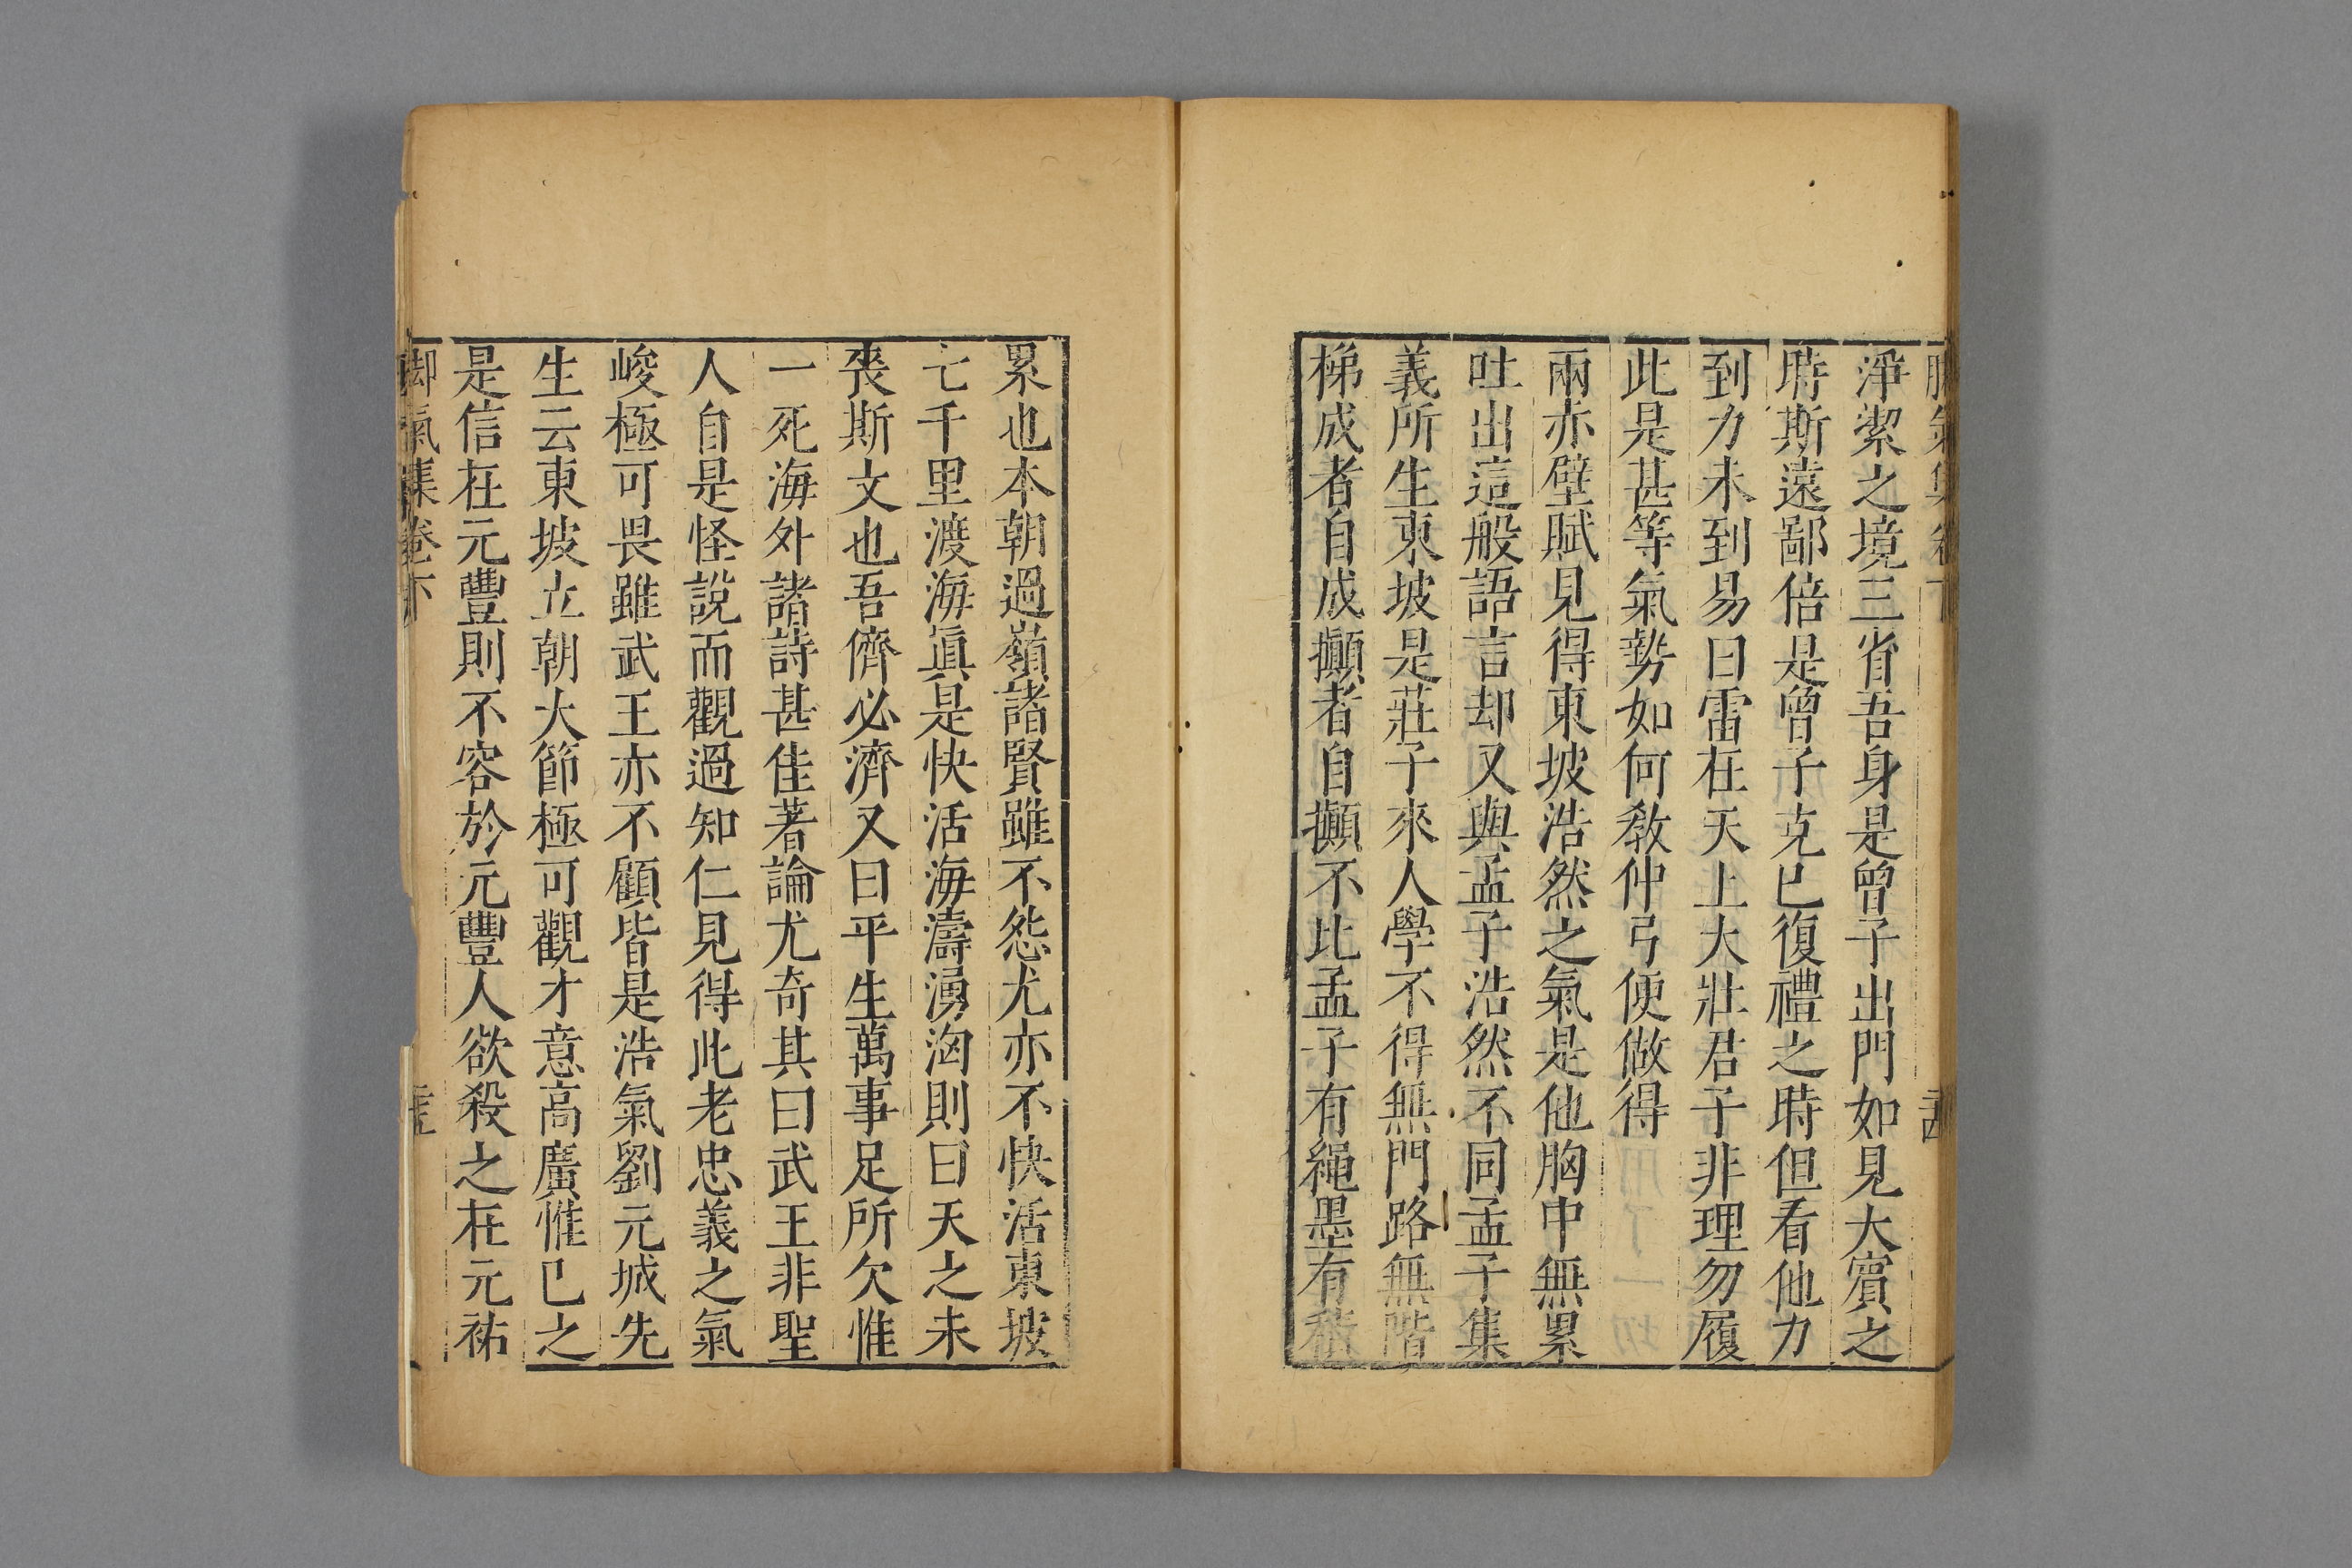 淨潔之境三省吾身是曾子出門如見大賔之
時斯遠鄙倍是曾子克已復禮之時但看他力
到力未到易曰雷在天上大壯君子非理勿履
此是甚等氣勢如何教仲弓便做得
兩赤壁賦見得東坡浩然之氣是他胸中無累
吐出這般語言却又與孟子浩然不同孟子集
義所生東坡是莊子來人學不得無門路無階
梯成者自成攧者自攧不比孟子有繩墨有積
累也本朝過嶺諸賢雖不怨尤亦不快活東坡
七千里渡海眞是快活海濤湧洶則曰天之未
喪斯文也吾儕必濟又曰平生萬事足所欠惟
一死海外諸詩甚佳著論尤奇其曰武王非聖
人自是怪說而觀過知仁見得此老忠義之氣
峻極可畏雖武王亦不顧皆是浩氣劉元城先
生云東坡立朝大節極可觀才意高廣惟已之
是信在元豐則不容於元豐人欲殺之在元祐
脚氣集卷下